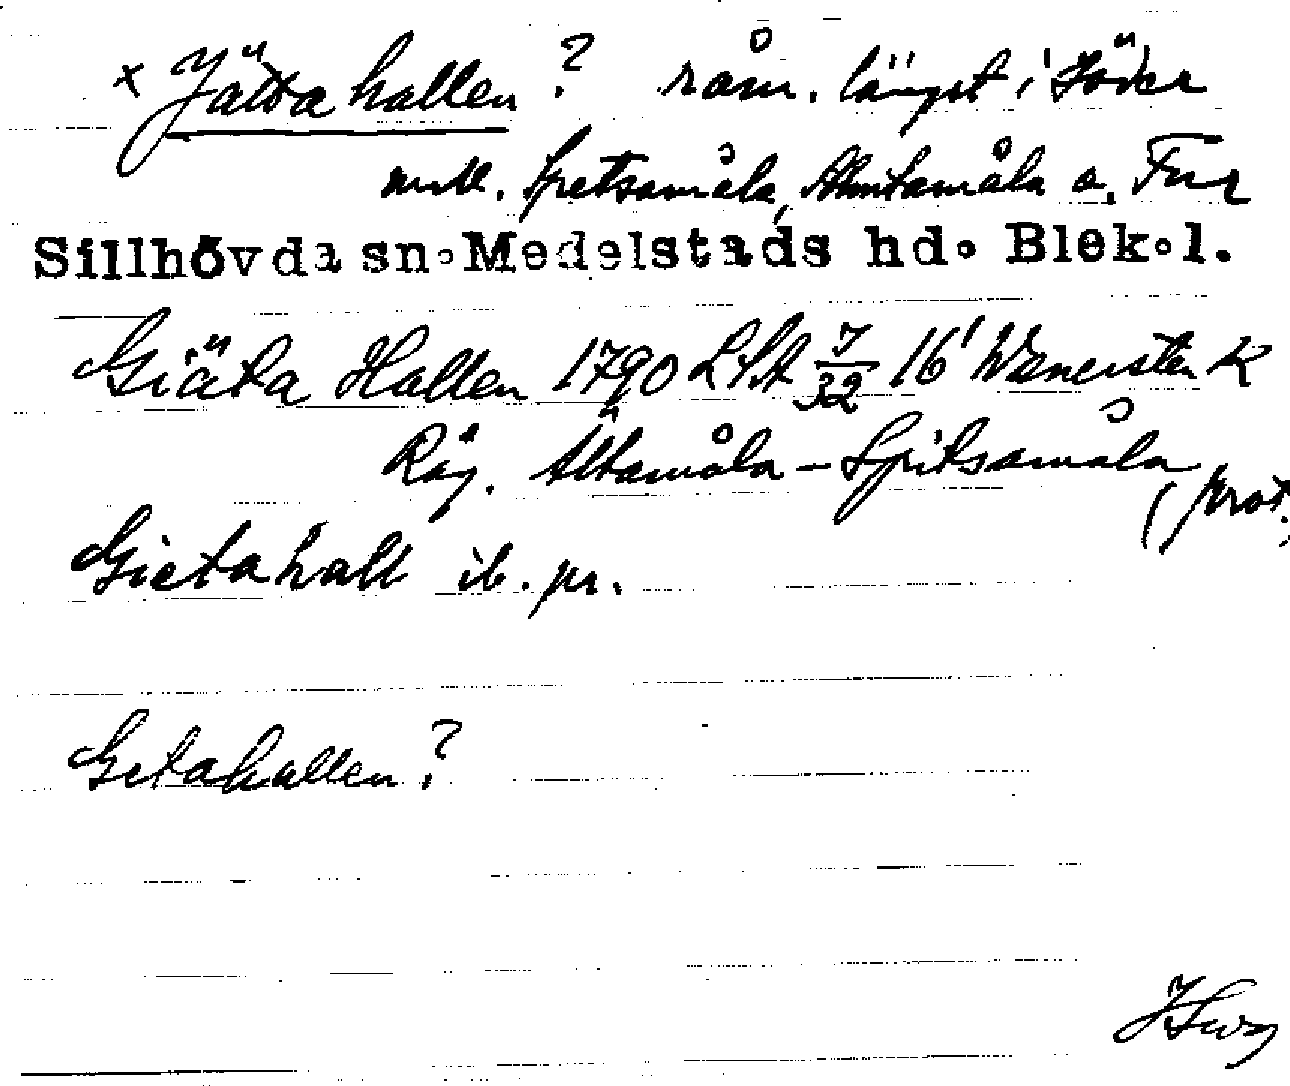 x Jätta hallen? råm. längst i Söder
mell. Spetsamåla, Almtamåla o. Fur
Sillhövda sn. Medelstads hd. Blek.l.
Giäta Hallen 1790 LSA 7/32 16' Wenersten K
Råg. Ältamåla - Spitsamåla
(prot.
Gietahall ib. pr.
Getahallen?